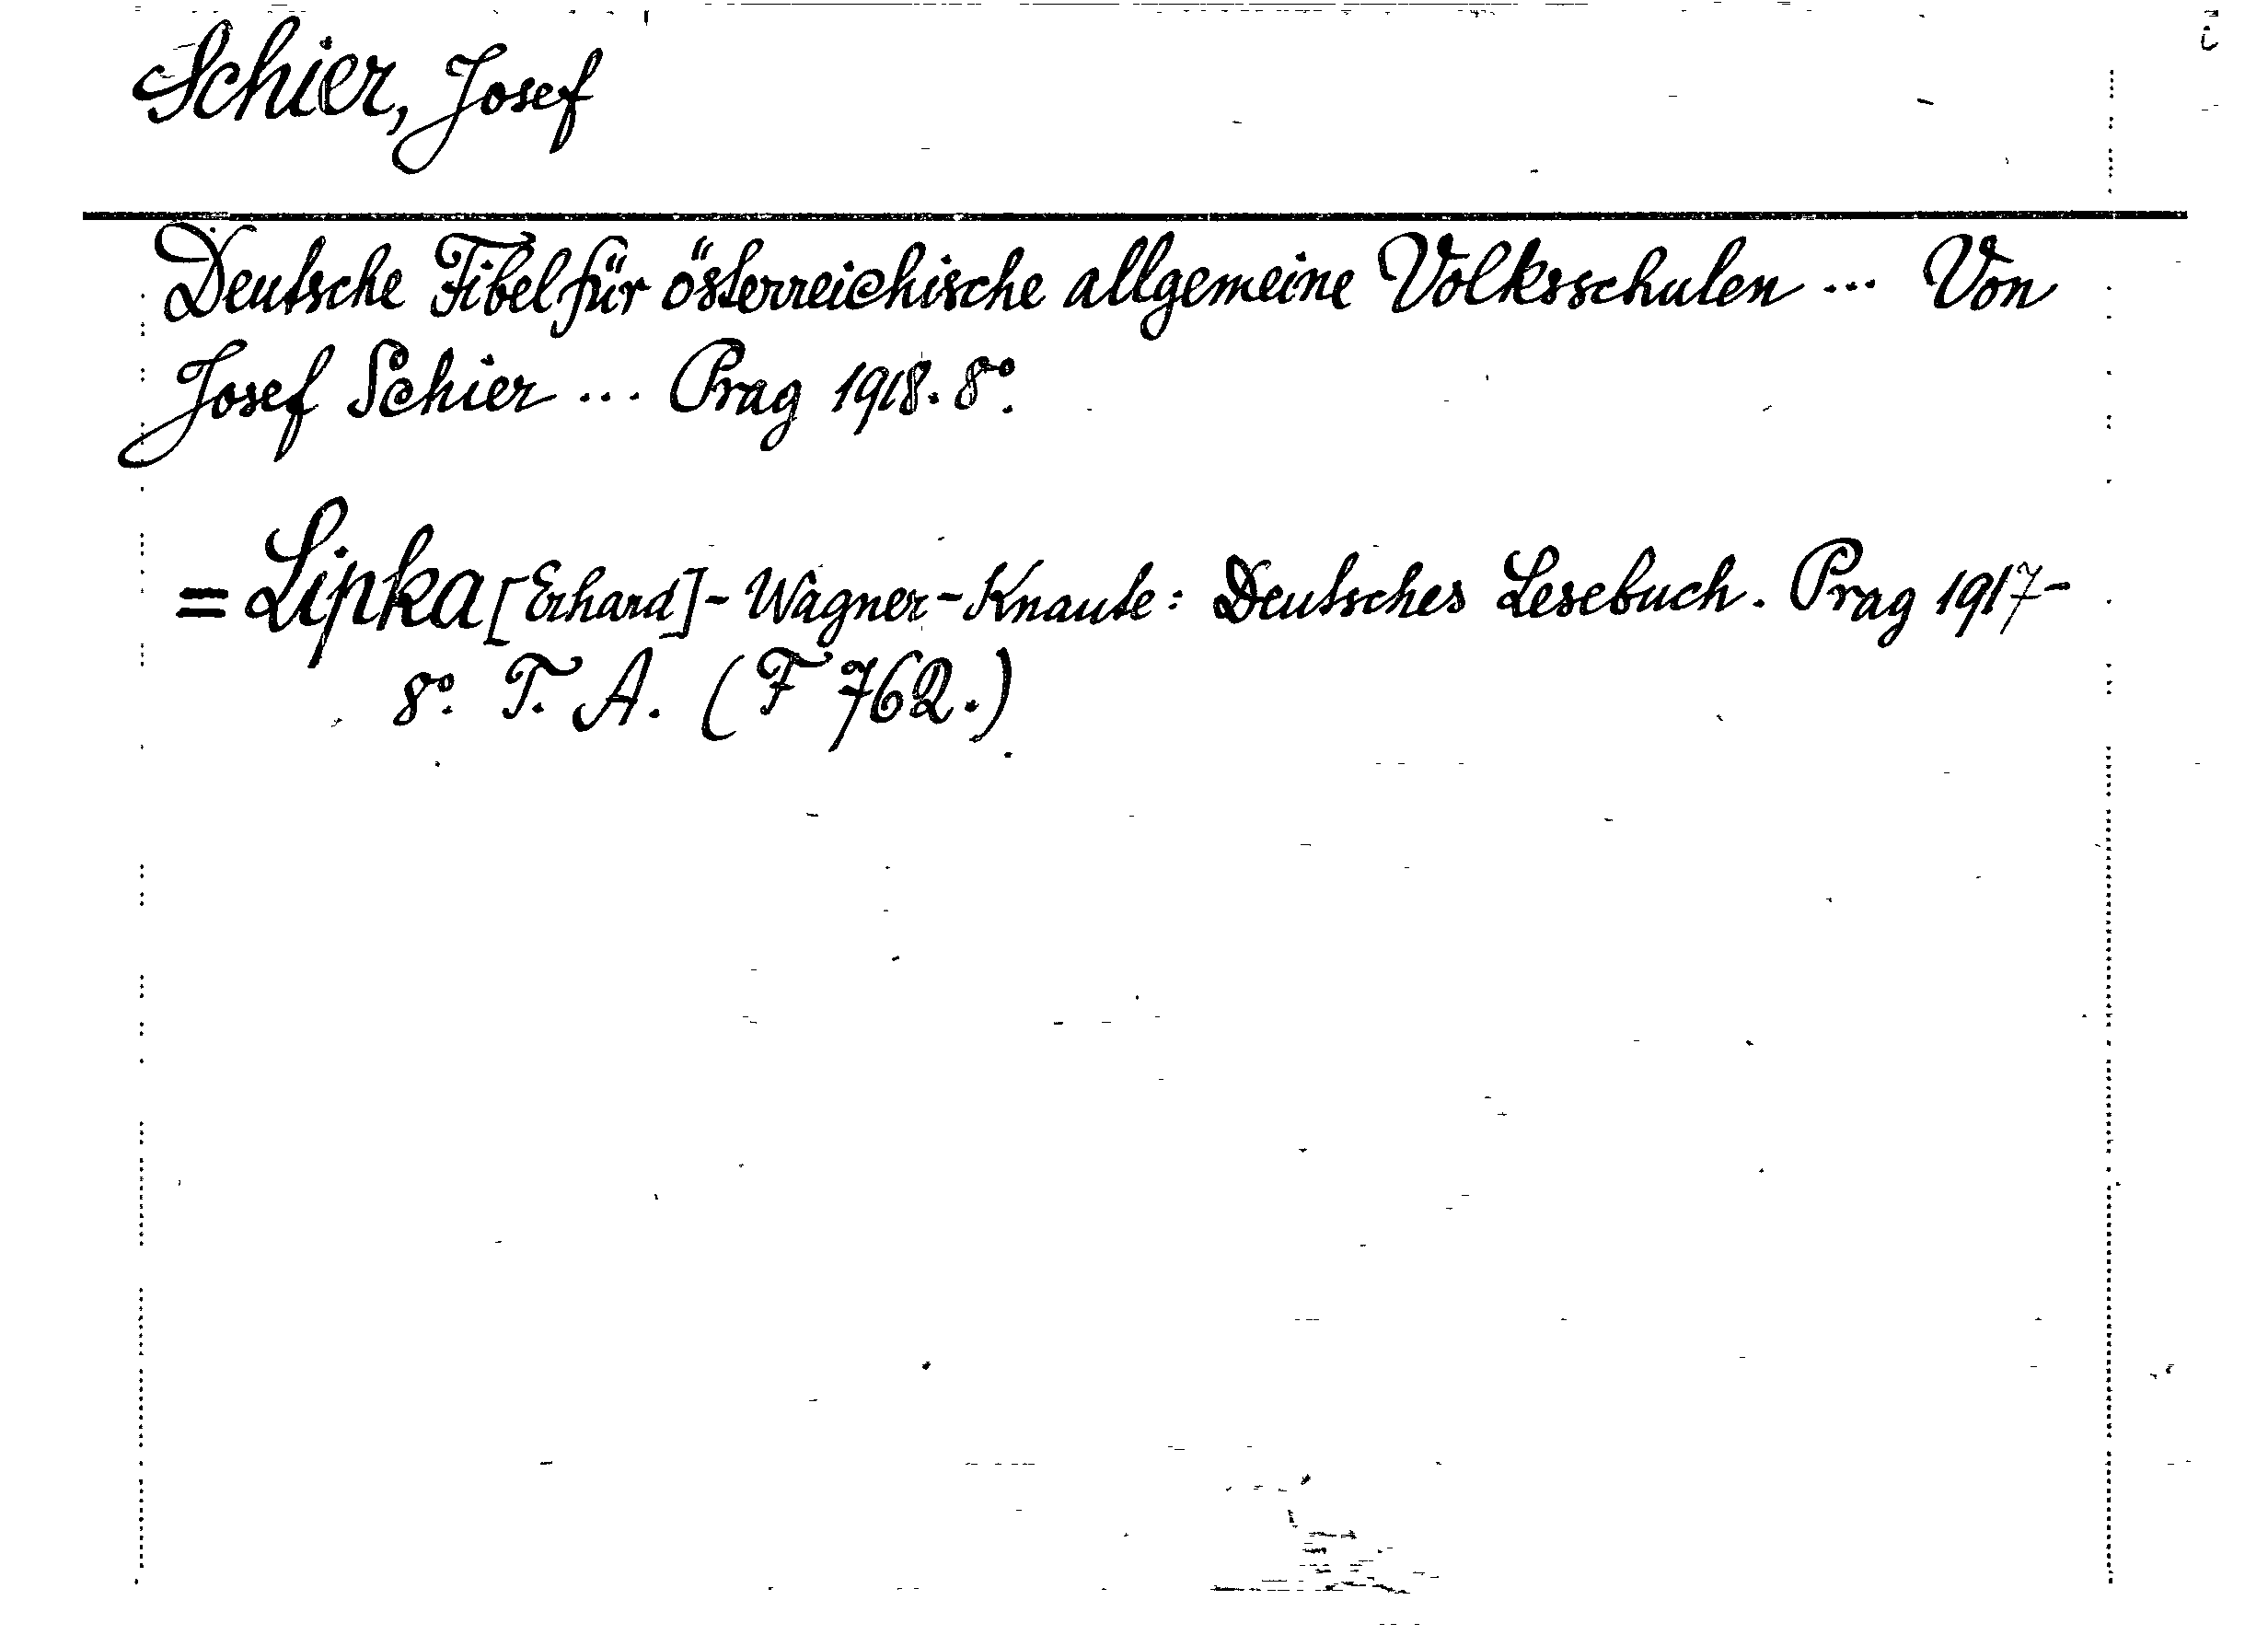 Schier, Josef
Deutsche Fibel für österreichische allgemeine Volksschulen ... Von
Josef Schier ... Prag 1918. 8°.
= Lipka [Erhard] - Wagner - Knaute: Deutsches Lesebuch. Prag 1917-
8°. T. A. (F 762.)